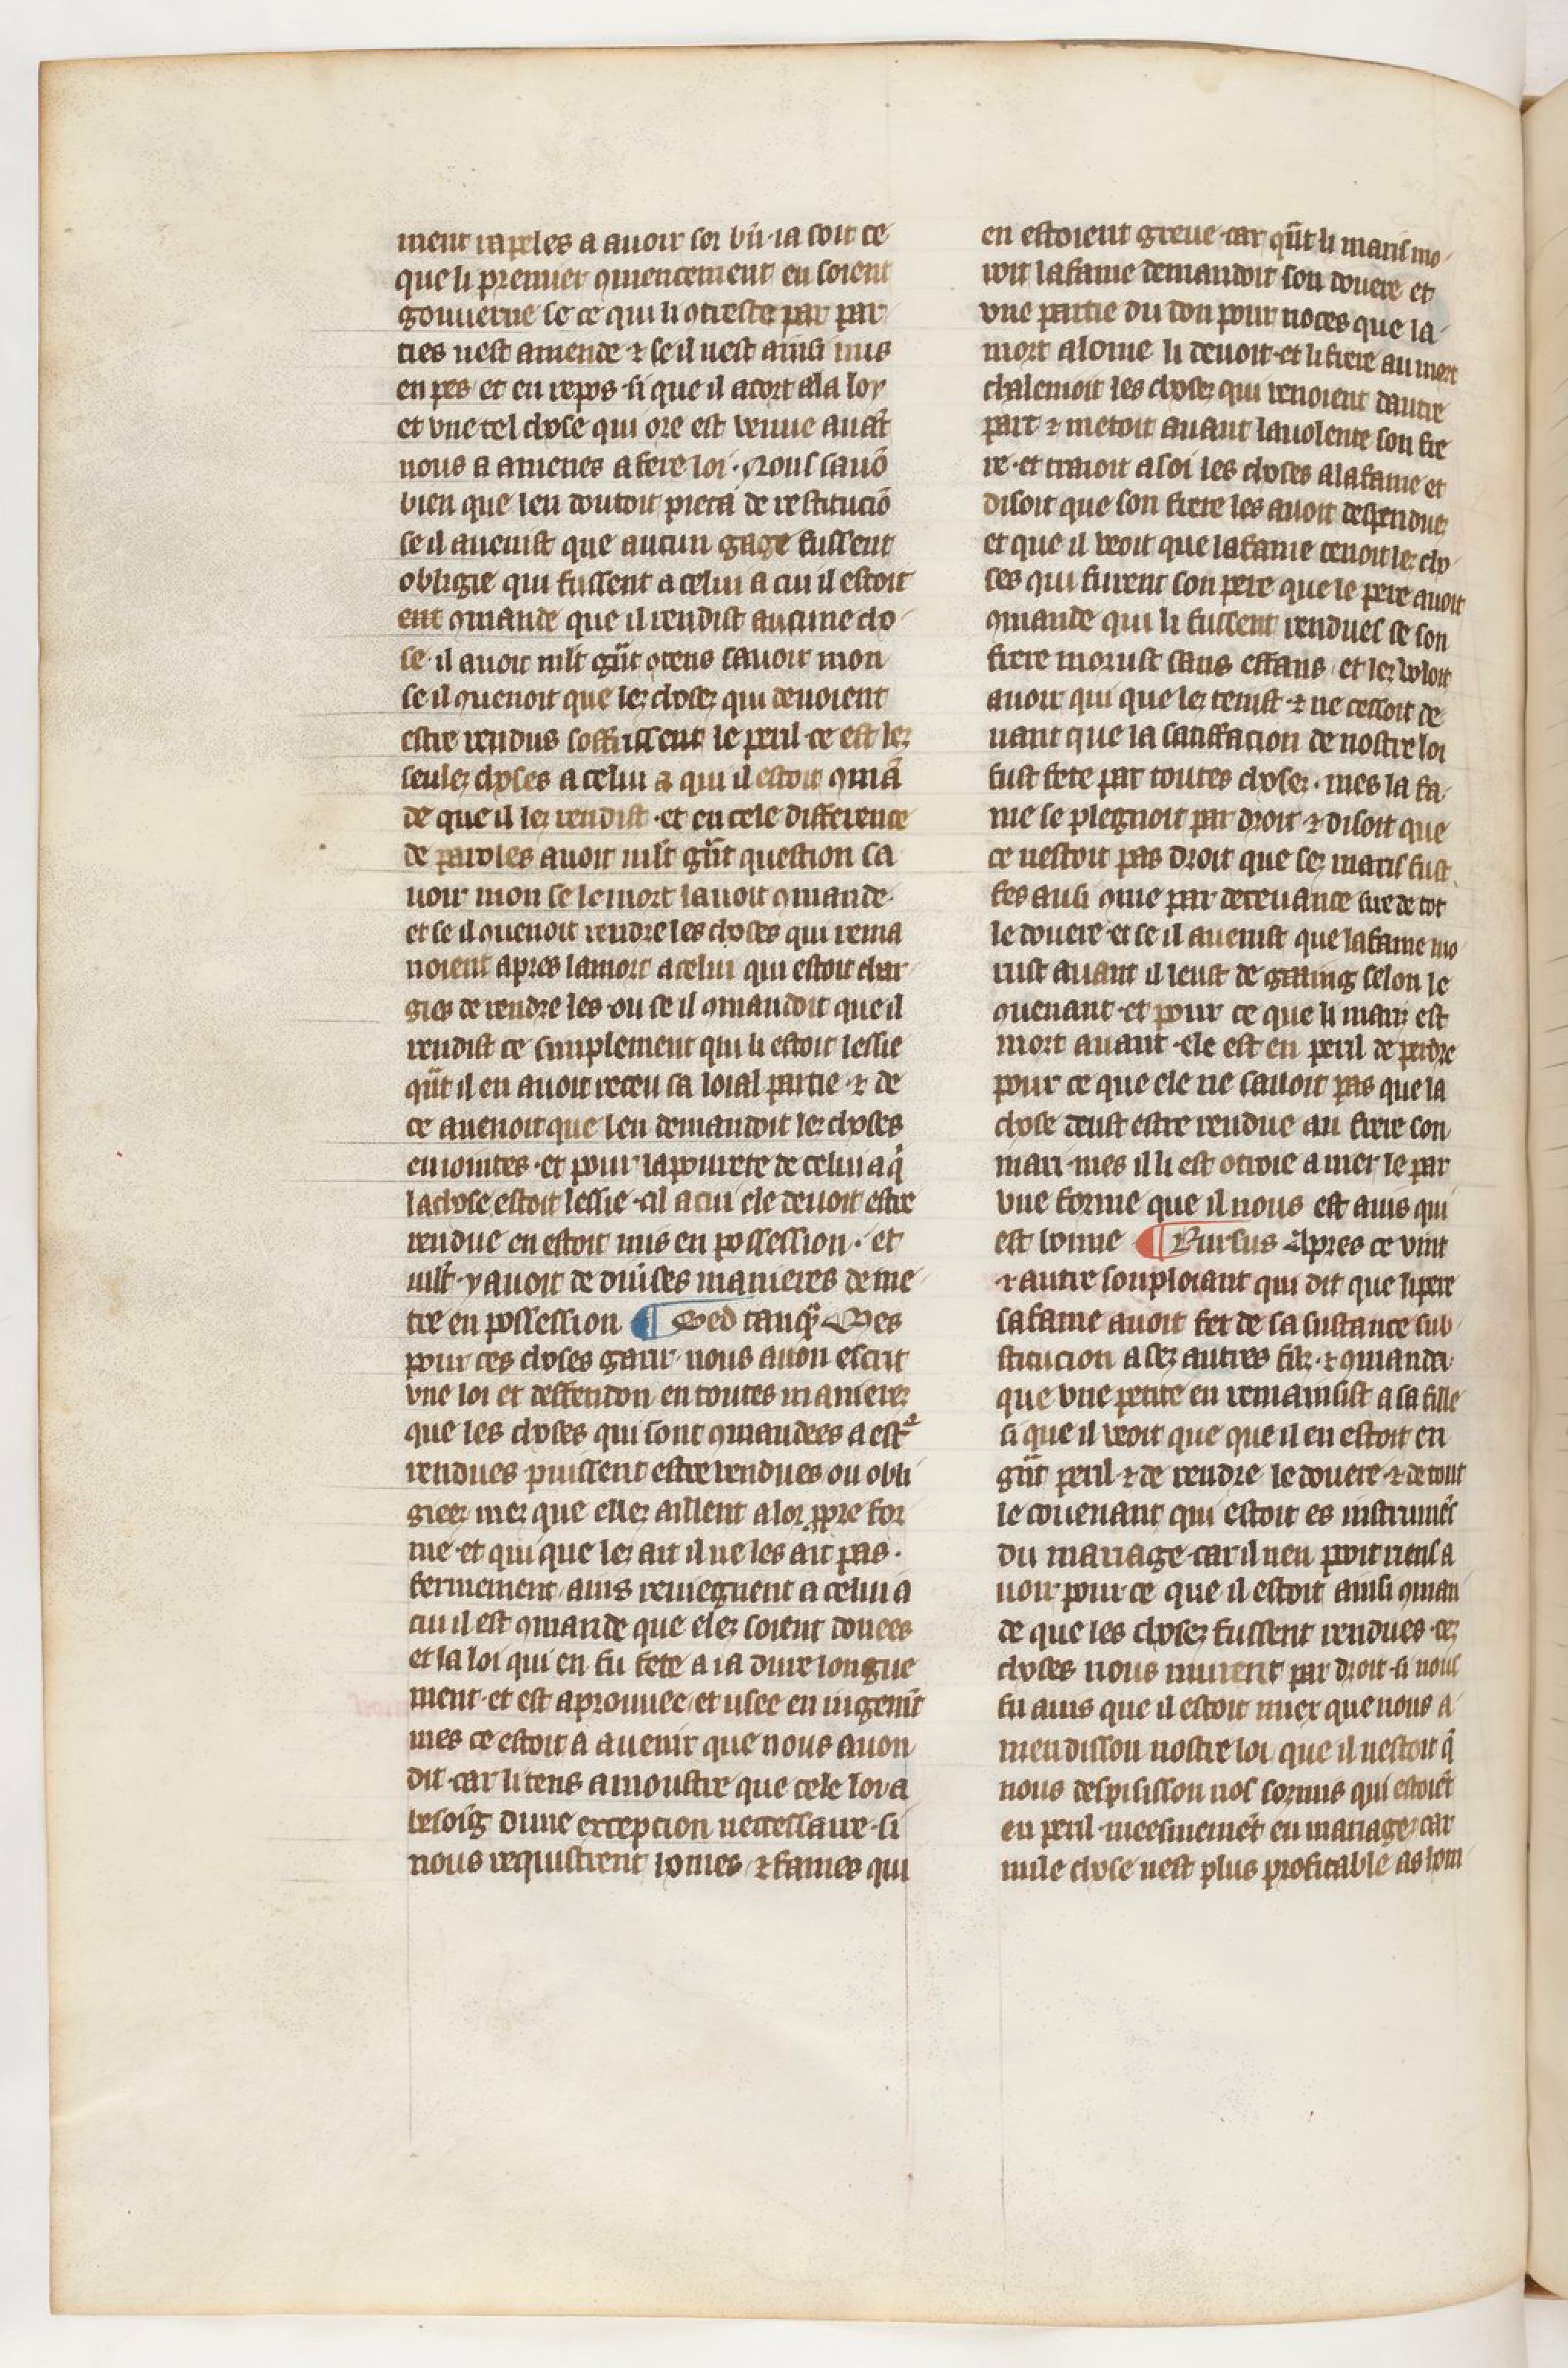 ment rapeles a auoir soi bn̄ · ia soit ce
que li premier ꝯmencement en soient
gouuerne se ce qui li ꝯtreste par par
ties nest amende ⁊ se il nest ainsi mis
en pes et en repos si que il acort ala loy
et vne tel chose qui ore est venue auāt
nous a amenes a fere loi · Nous sauō
bien que len doutoit pieca de restituciō
se il auenist que aucun gage fussent
obligie qui fussent a celui a cui il estoit
ent ꝯmande que il rendist aucune cho
se · il auoit ml̄t gn̄t ꝯtens sauoir mon
se il ꝯuenoit que lez chosez qui deuoient
estre rendus soffrissent le peril ce est lez
seulez choses a celui a qui il estoit ꝯmā
de que il lez rendist · et en cele difference
de paroles auoit ml̄t gn̄t question sa
uoir mon se le mort lauoit ꝯmande
et se il ꝯuenoit rendre les choses qui rema
noient apres la mort a celui qui estoit char
gies de rendre les · ou se il ꝯmandoit que il
rendist ce simplement qui li estoit lessie
qn̄t il en auoit receu sa loial partie · ⁊ de
ce auenoit que len demandoit lez choses
eniointes · et pour la pourete de celui a q̄
la chose estoit lessie · cil a cui ele deuoit estre
rendue en estoit mis en possession · et
ml̄t y auoit de diuises manieres de me
tre en possession ¶ Sed tanq̄ Mes
pour ces choses garir nous auon escrit
vne loi et deffendon en toutes manierez
que les choses qui sont ꝯmandees a estᵉ
rendues puissent estre rendues ou obli
gieez mez que ellez aillent a lor ꝓpre for
me · et qui que lez ait il ne les ait pas ·
fermement ains reuiegnent a celui a
cui il est ꝯmande que elez soient donees
et la loi qui en fu fete a ia dure longue
ment · et est aprouuee et usee en iugemt̄
mes ce estoit a auenir que nous auon
dit · car li tens a moustre que cele loy a
besoig dune excepcion necessaire · si
nous requistrent homes ⁊ fames qui
en estoient greue · car qn̄t li maris mo
roit la fame demandoit son douere et
vne partie du don pour noces que la
mort alome li deuoit · et li frere au mort
chalenioit les chosez qui venoient dautre
part ⁊ metoit auant la uolente son fre
re · et traioit a soi les choses a la fame et
disoit que son frere les auoit despendues
et que il veoit que la fame tenoit lez cho
ses qui furent son pere que le pere auoit
ꝯmande qui li fussent rendues se son
frere morust sans effans · et lez voloit
auoir qui que lez tenist · ⁊ ne cessoit de
uant que la satiffacion de nostre loi
fust fete par toutes chosez · mes la fa
me se plegnoit par droit ⁊ disoit que
ce nestoit pas droit que sez maris fust
fes ausi ꝯme par deceuance sue de tot
le douere · et se il auenist que la fame mo
rust auant il ieust de graing selon le
ꝯuenant · et pour ce que li mari est
mort auant · ele est en peril de perdre
pour ce que ele ne sauoit pas que la
chose deust estre rendue au frere son
mari · mes il li est otroie a mer le par
vne forme que il nous est auis qui
est bonne ¶ Rursus Apres ce vint
⁊ autre souploiant qui dit que li pere
sa fame auoit fet de sa sustance sub
stitucion a sez autres filz · ⁊ ꝯmanda
que vne petite en remainsist a sa fille
si que il veoit que que il en estoit en
gn̄t peril ⁊ de rendre le douere · ⁊ de tout
le couenant qui estoit es instrumēs
du mariage · car il nen poit riens a
uoir pour ce que il estoit ainsi ꝯman
de que les chosez fussent rendues · cez
choses nous murent par droit · si nous
fu auis que il estoit miex que nous a
mendisson nostre loi que il nestoit q̄
nous despisisson nos sozmis qui estoiēt
en peril meesmemēt en mariage car
nule chose nest plus profitable as hom